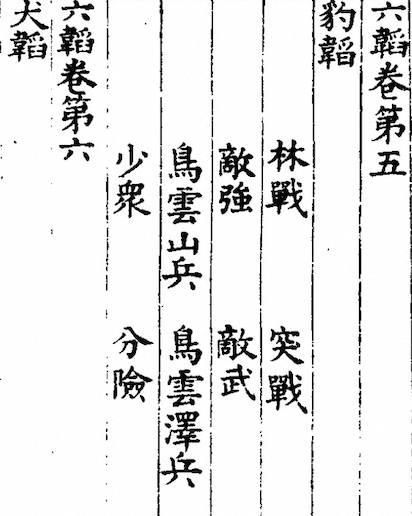 六韜卷第五
豹韜
林戰 突戰
敵強 敵武
鳥雲山兵 鳥雲澤兵
少衆 分險
六韜卷第六
犬韜